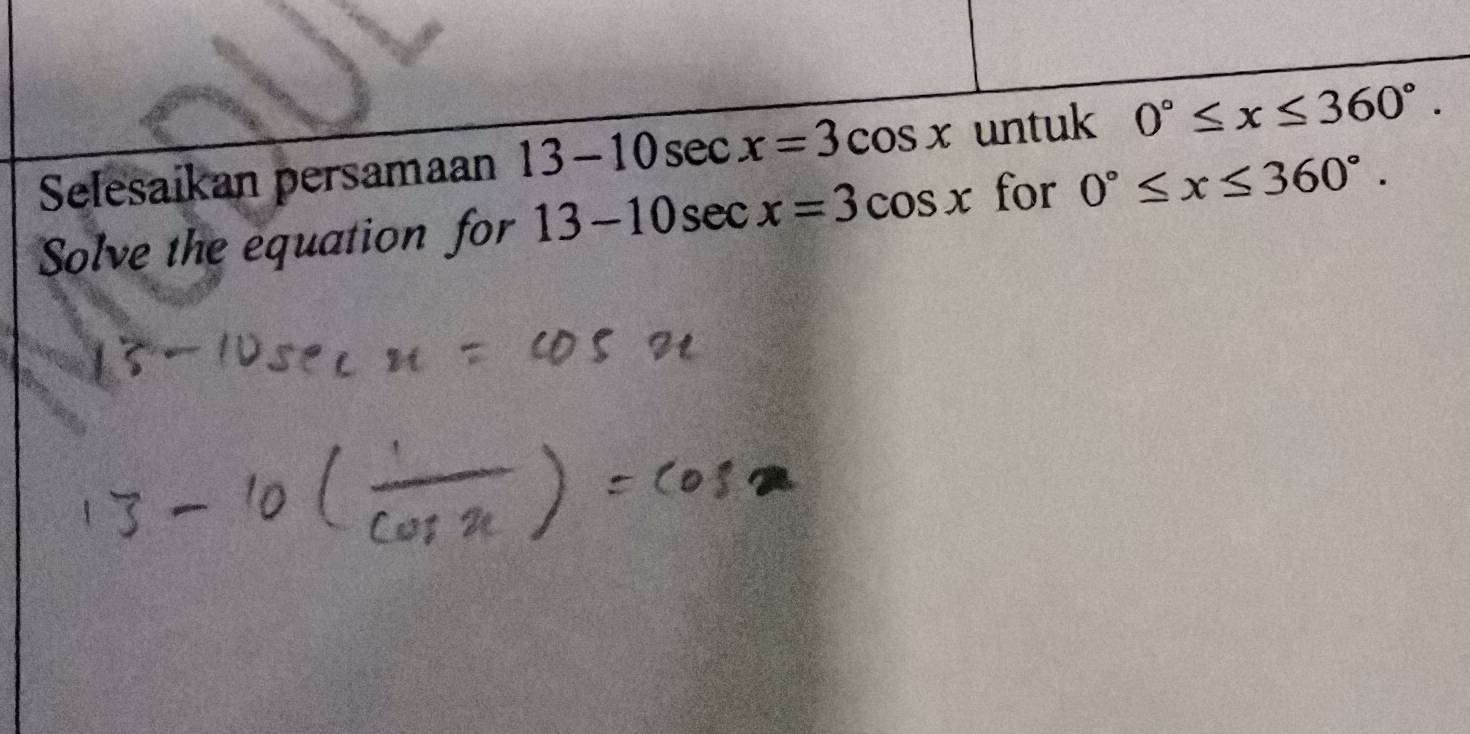 Selesaikan persamaan 13 − 10 sec x = 3 cos x untuk 0° ≤ x ≤ 360°.
Solve the equation for 13 − 10 sec x = 3 cos x for 0° ≤ x ≤ 360°.
13 − 10 sec x = cos x
13 − 10 (1/cos x) = cos x